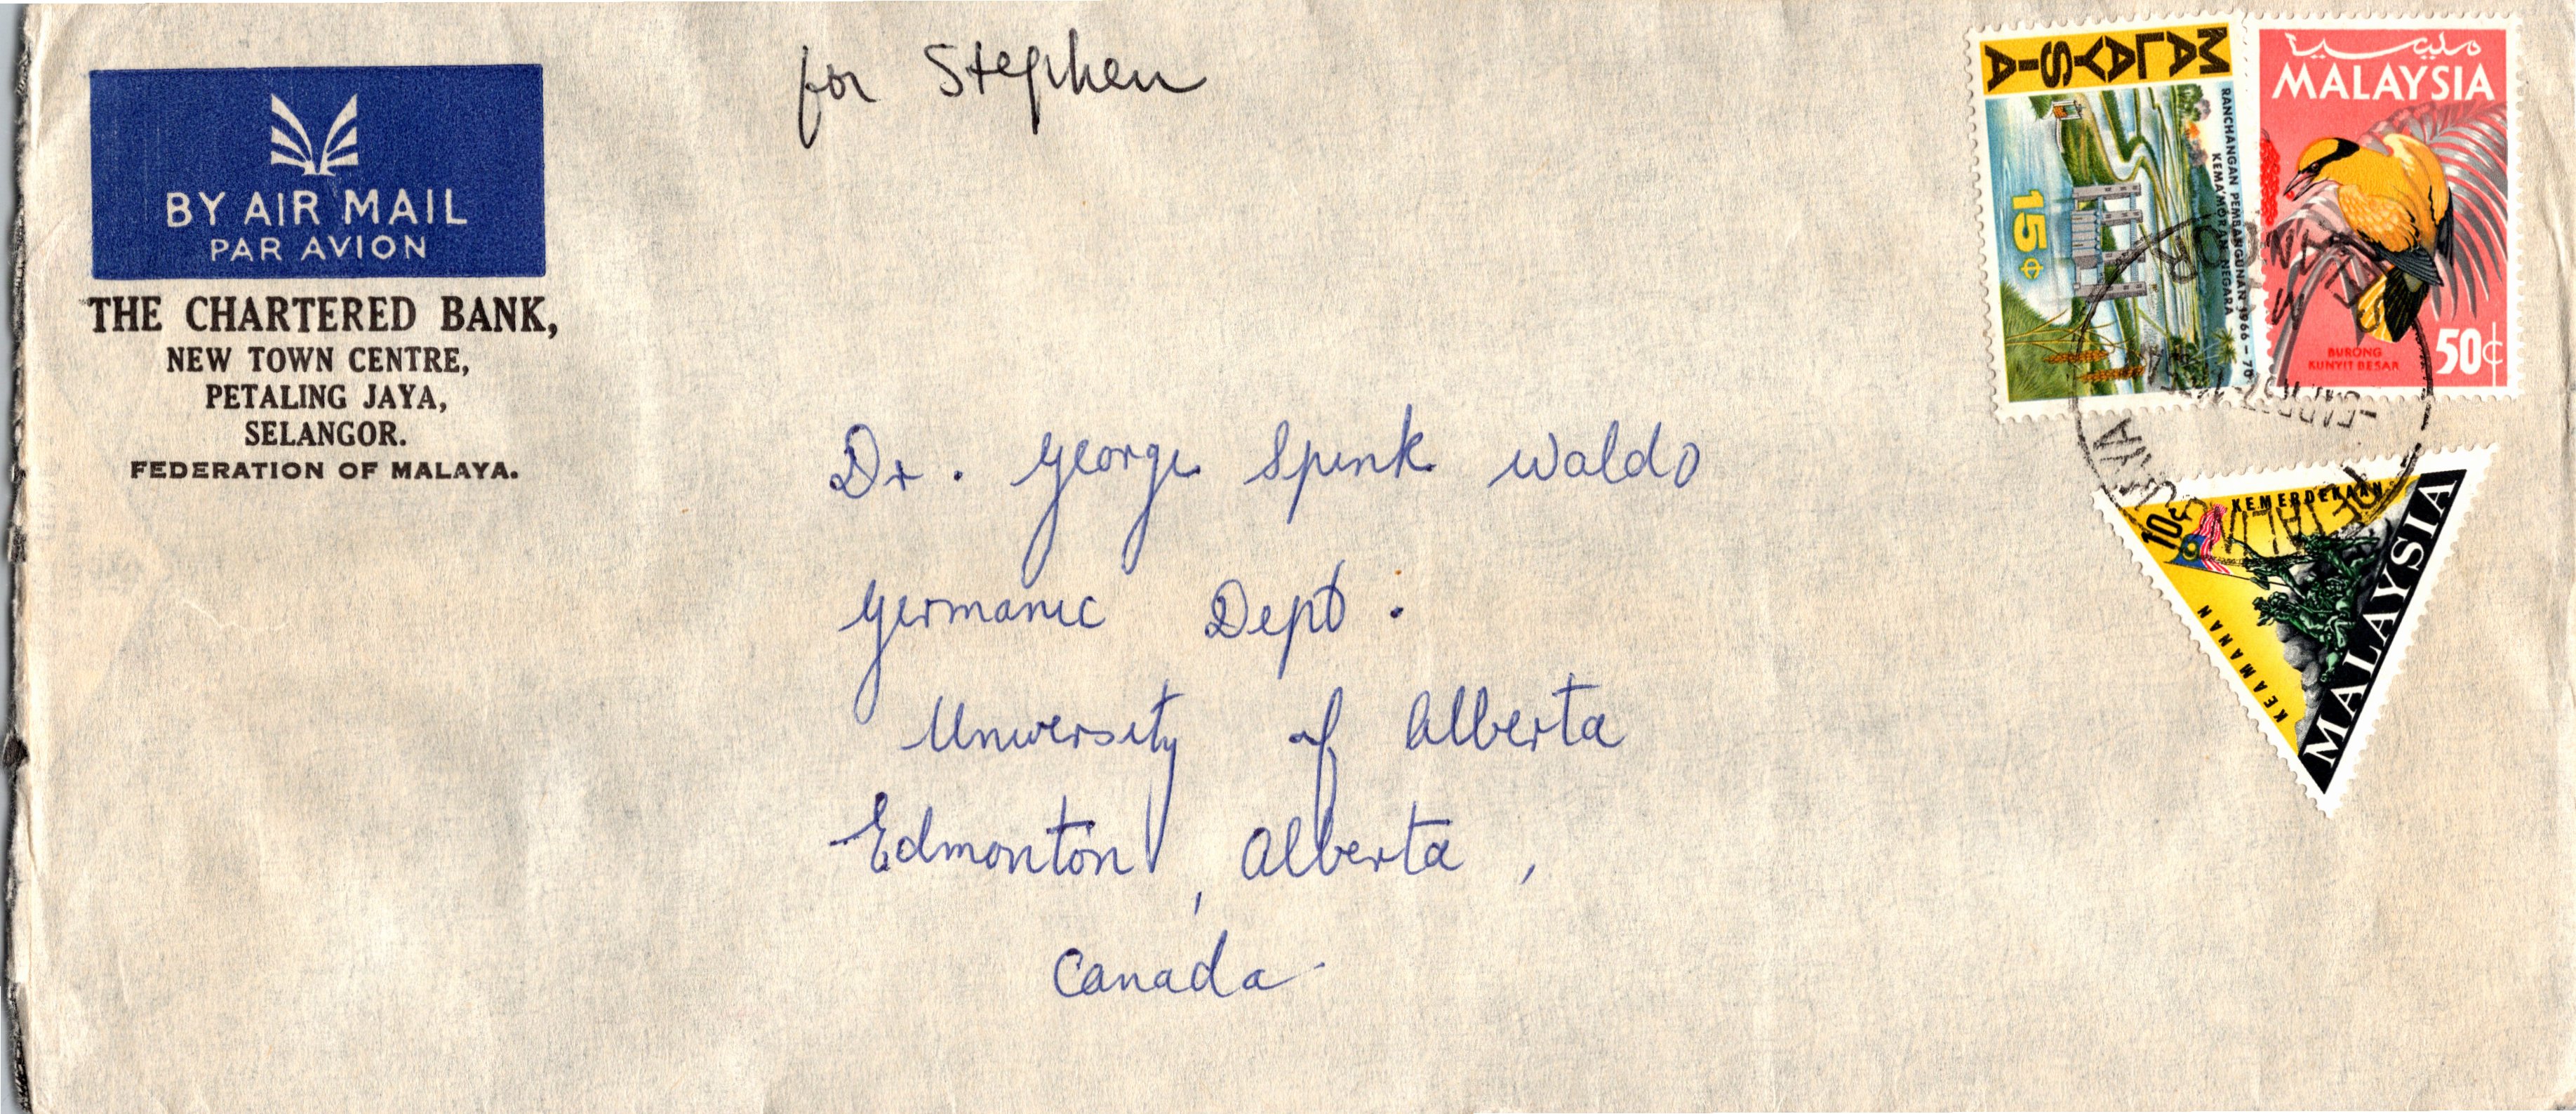 for Stephen
BY AIR MAIL
PAR AVION
THE CHARTERED BANK,
NEW TOWN CENTRE,
PETALING JAYA,
SELANGOR.
FEDERATION OF MALAYA.
Dr. George Spink Waldo
Germanic Dept.
University of Alberta
Edmonton, Alberta,
Canada.
MALAYSIA
RANCHANGAN PEMBANGUNAN 1966-70
KEMA'MORAN NEGARA
15¢
مليسيا
MALAYSIA
BURONG
KUNYIT BESAR
50¢
10¢
KEMERDEKAAN
KEAMANAN
MALAYSIA
PETALING JAYA
SELANGOR